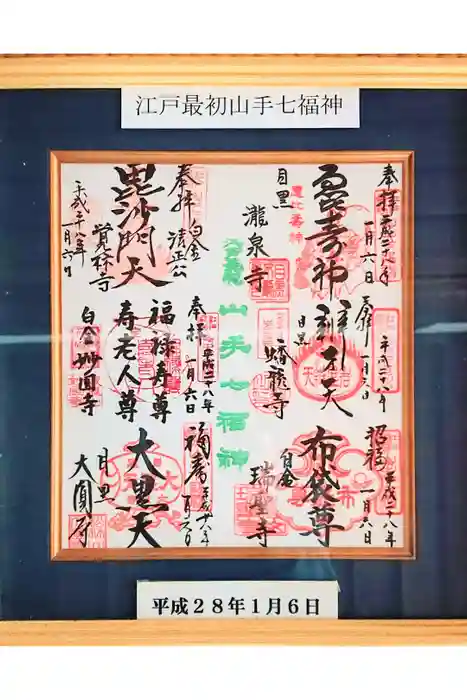 江戸最初山手七福神
奉拝
平成二十八年
一月六日
恵比寿神
ゑ寿神
目黒
瀧泉寺
奉拝
平成二十八年
一月六日
辨才天
目黒
蟠龍寺
招福
平成二十八年
一月六日
布袋尊
白金
瑞聖寺
山手七福神
奉拝
白金
清正公
毘沙門天
覚林寺
平成二十八年
一月六日
奉拝
平成二十八年
一月六日
福禄寿尊
寿老人尊
白金妙円寺
福寿
平成二十八年
一月六日
大黒天
目黒
大圓寺
平成28年1月6日